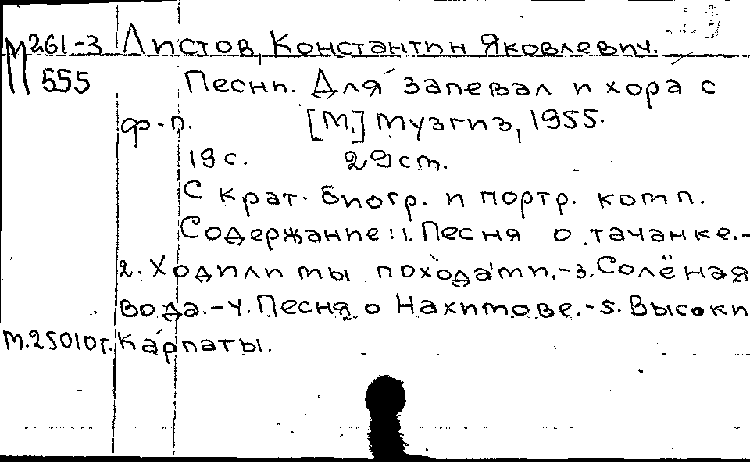 М261-3 Листов, Константин Яковлевич.
555 Песни. Для запевал и хора с
ф-п. [М.] Музгиз, 1955.
19 с. 29 см.
С крат. биогр. и портр. комп.
Содержание: 1. Песня о тачанке.-
2. Ходили мы походами.-3. Солёная
вода.-4. Песня о Нахимове.-5. Высоки
М.25010г. Карпаты.